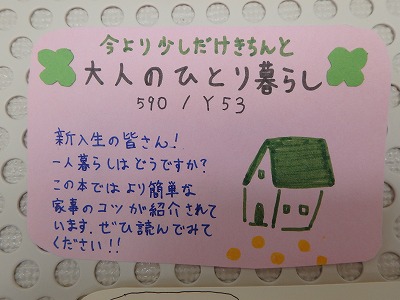 今より少しだけきちんと
大人のひとり暮らし
590 / Y53
新入生の皆さん!
一人暮らしはどうですか?
この本では より簡単な
家事のコツが紹介されて
います。ぜひ読んでみて
ください!!